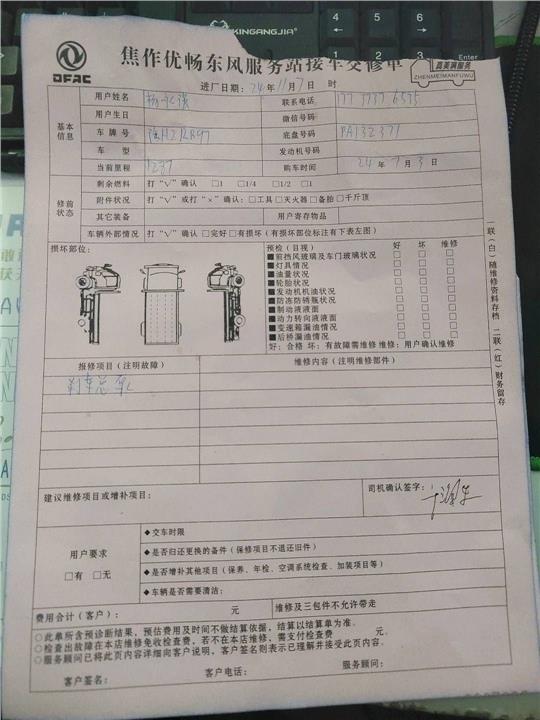 KINGANGJIA
焦作优畅东风服务站接车交修单
DFAC
真美满服务
ZHENMEIMANFUWU
进厂日期：24年11月7日 时
基本信息
用户姓名
联系电话
用户生日
微信号码
车牌号
底盘号码 RA132371
车型
发动机号码
当前里程
购车时间 24年7月3日
修前状态
剩余燃料 打“√”确认 □1 □1/4 □1/2 □1
附件状况 打“√”或打“×”确认：□工具□灭火器□备胎□千斤顶
其它装备 打“√”确认 用户寄存物品
车辆外部情况 打“√”确认 □完好□有损坏（有损坏部位标注有下表左图）
损坏部位：
预检（目视） 好 坏 维修
■前挡风玻璃及车门玻璃状况 □ □ □
■灯具情况 □ □ □
■油量状况 □ □ □
■轮胎状况 □ □ □
■发动机机油状况 □ □ □
■防冻防锈瓶状况 □ □ □
■制动液液面 □ □ □
■动力转向液液面 □ □ □
■变速箱漏油情况 □ □ □
■后桥漏油情况 □ □ □
好：合格 坏：有故障需维修 维修：用户确认维修
一联（白）随维修资料存档 二联（红）财务留存
报修项目（注明故障） 维修内容（注明维修部件）
刹车总泵
建议维修项目或增补项目：
司机确认签字：
用户要求
□有 □无
◆交车时限
◆是否归还更换的备件（保修项目不退还旧件）
◆是否增补其他项目（保养、年检、空调系统检查、加装项目等）
◆车辆是否需要清洁：
费用合计（客户）： 元 维修及三包件不允许带走
○此单所含预诊断结果，预估费用及时间不做结算依据，结算以结算单为准。
○检查出故障在本店维修免收检查费，若不在本店维修，需支付检查费 元。
○服务顾问已将此页内容详细向客户说明，客户签名则表示已理解并接受此页内容。
客户签名： 客户电话： 服务顾问：